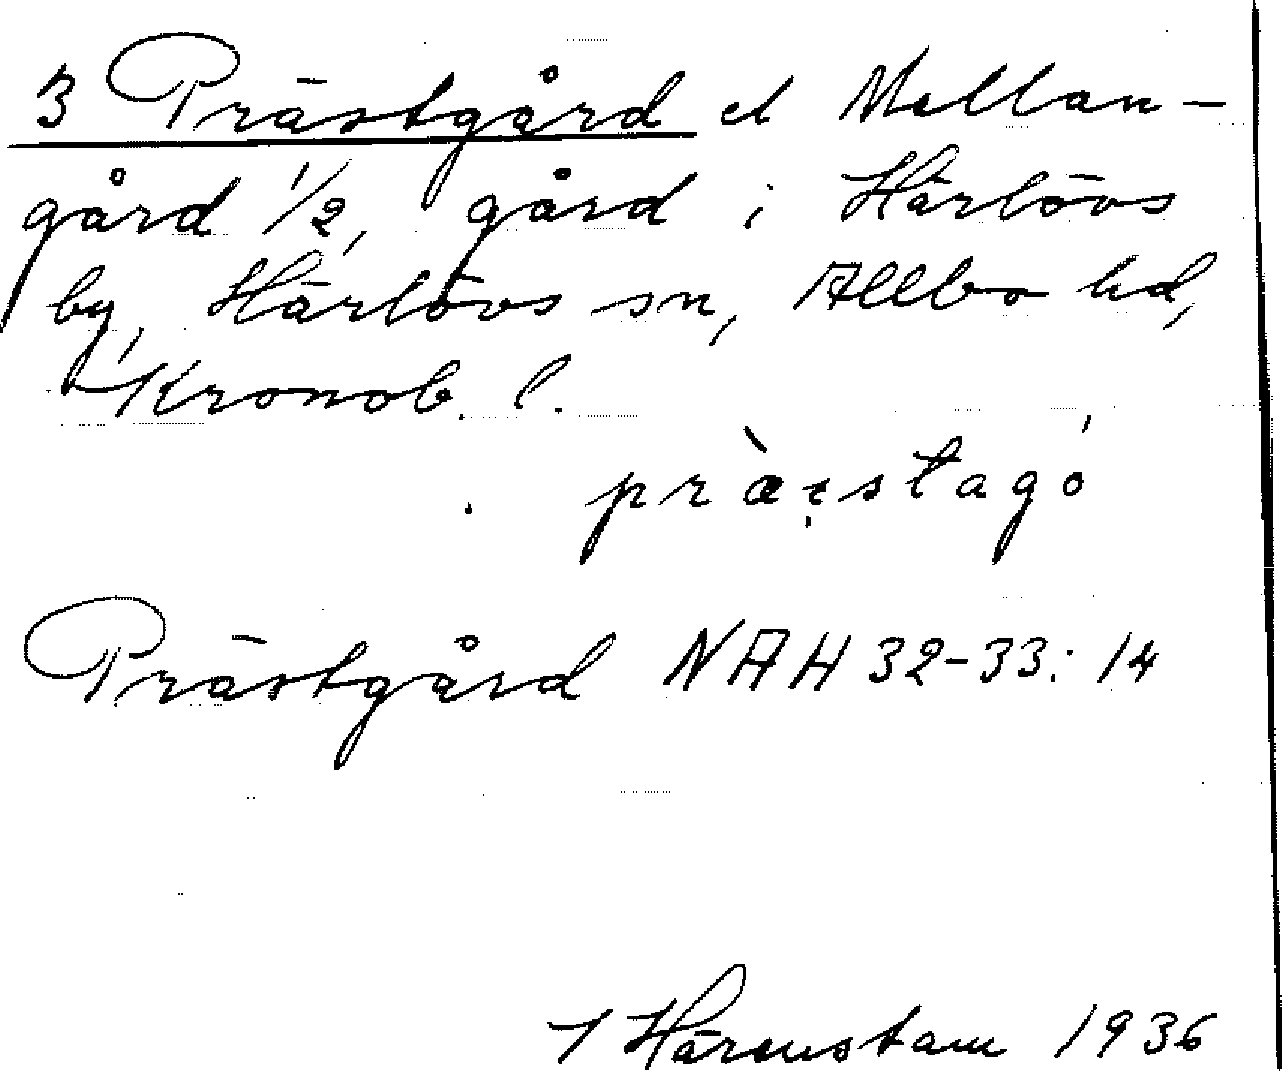 3 Prästgård el Mellan-
gård 1/2, gård i Härlövs
by, Härlövs sn, Allbo hd,
Kronob. l.
præ̀stagó
Prästgård NAH 32-33: 14
I Härenstam 1936